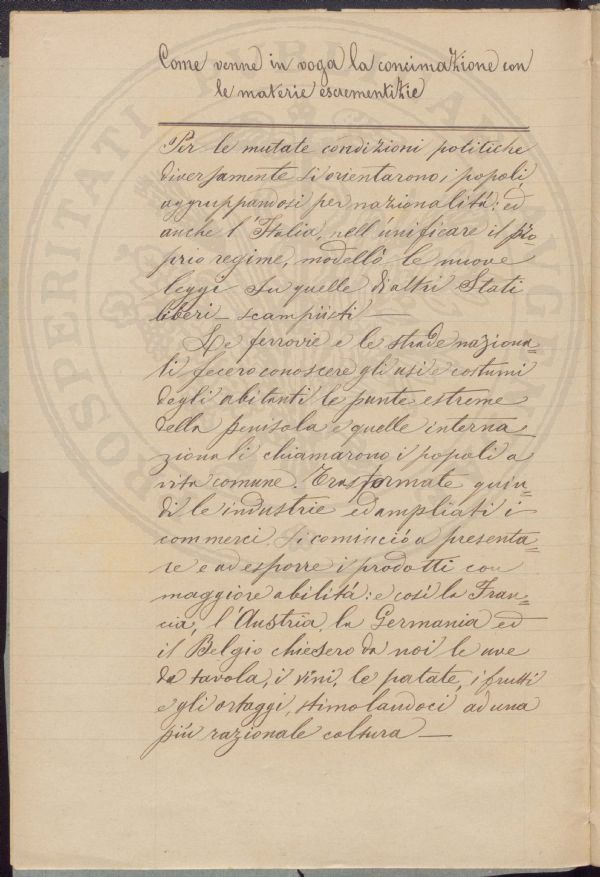 Come venne in voga la concimazione con
le materie escrementizie
Per le mutate condizioni politiche
diversamente si orientarono i popoli,
aggruppandosi per nazionalità: ed
anche l'Italia, nell'unificare il pro=
prio regime, modellò le nuove
leggi su quelle di altri Stati
liberi
Le ferrovie e le strade naziona=
li fecero conoscere gli usi e costumi
degli abitanti le punte estreme
della penisola e quelle interna
zionali chiamarono i popoli a
vita comune. Trasformate quin=
di le industrie ed ampliati i
commerci, si cominciò a presenta=
re e ad esporre i prodotti con
maggiore abilità: e così la Fran=
cia, l'Austria, la Germania ed
il Belgio chiesero da noi le uve
da tavola, i vini, le patate, i frutti
e gli ortaggi, stimolandoci ad una
più razionale coltura —
PROSPERITATI PUBLICAE